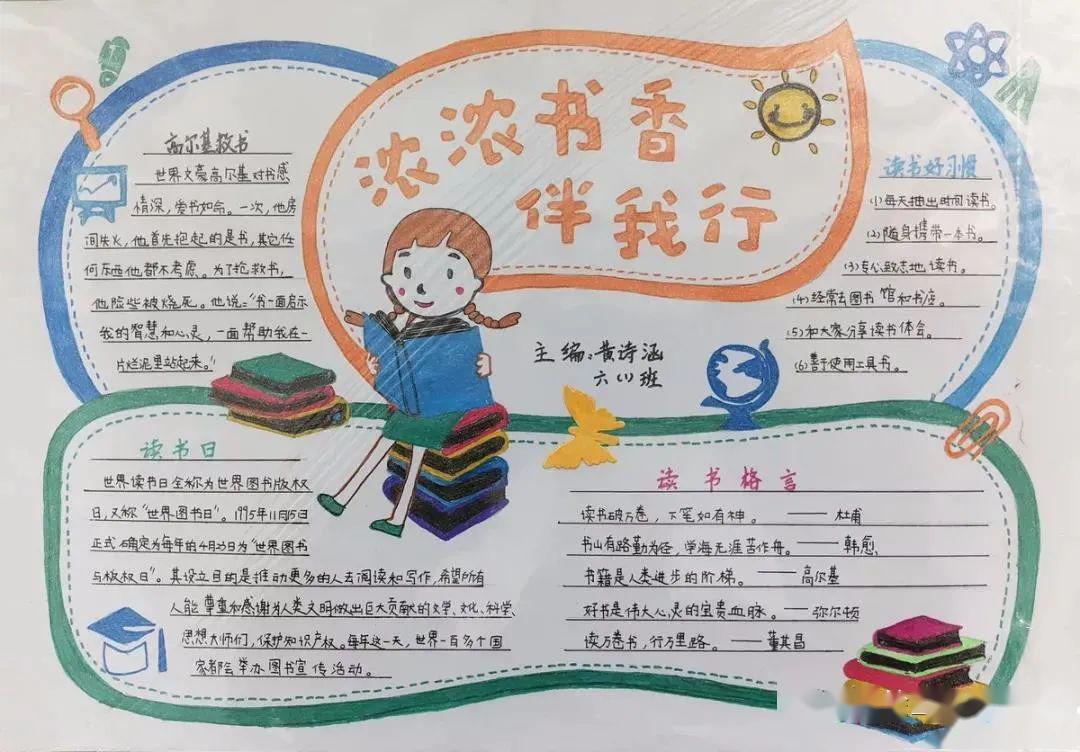 浓浓书香
伴我行
主编:黄诗涵
六(1)班
高尔基救书
世界文豪高尔基对书感
情深,爱书如命。一次,他房
间失火,他首先抱起的是书,其它任
何东西他都不考虑。为了抢救书,
他险些被烧死。他说:“书一面启示
我的智慧和心灵,一面帮助我在一
片烂泥里站起来。”
读书好习惯
(1)每天抽出时间读书。
(2)随身携带一本书。
(3)专心致志地读书。
(4)经常去图书馆和书店。
(5)和大家分享读书体会。
(6)善于使用工具书。
读书日
世界读书日全称为世界图书版权
日,又称“世界图书日”。1995年11月15日
正式确定为每年的4月23日为“世界图书
与板权日”。其设立目的是推动更多的人去阅读和写作,希望所有
人能尊重和感谢为人类文明做出巨大贡献的文学、文化、科学、
思想大师们,保护知识产权。每年这一天,世界一百多个国
家都会举办图书宣传活动。
读书格言
读书破万卷,下笔如有神。——杜甫
书山有路勤为径,学海无涯苦作舟。——韩愈
书籍是人类进步的阶梯。——高尔基
好书是伟大心灵的宝贵血脉。——弥尔顿
读万卷书,行万里路。——董其昌